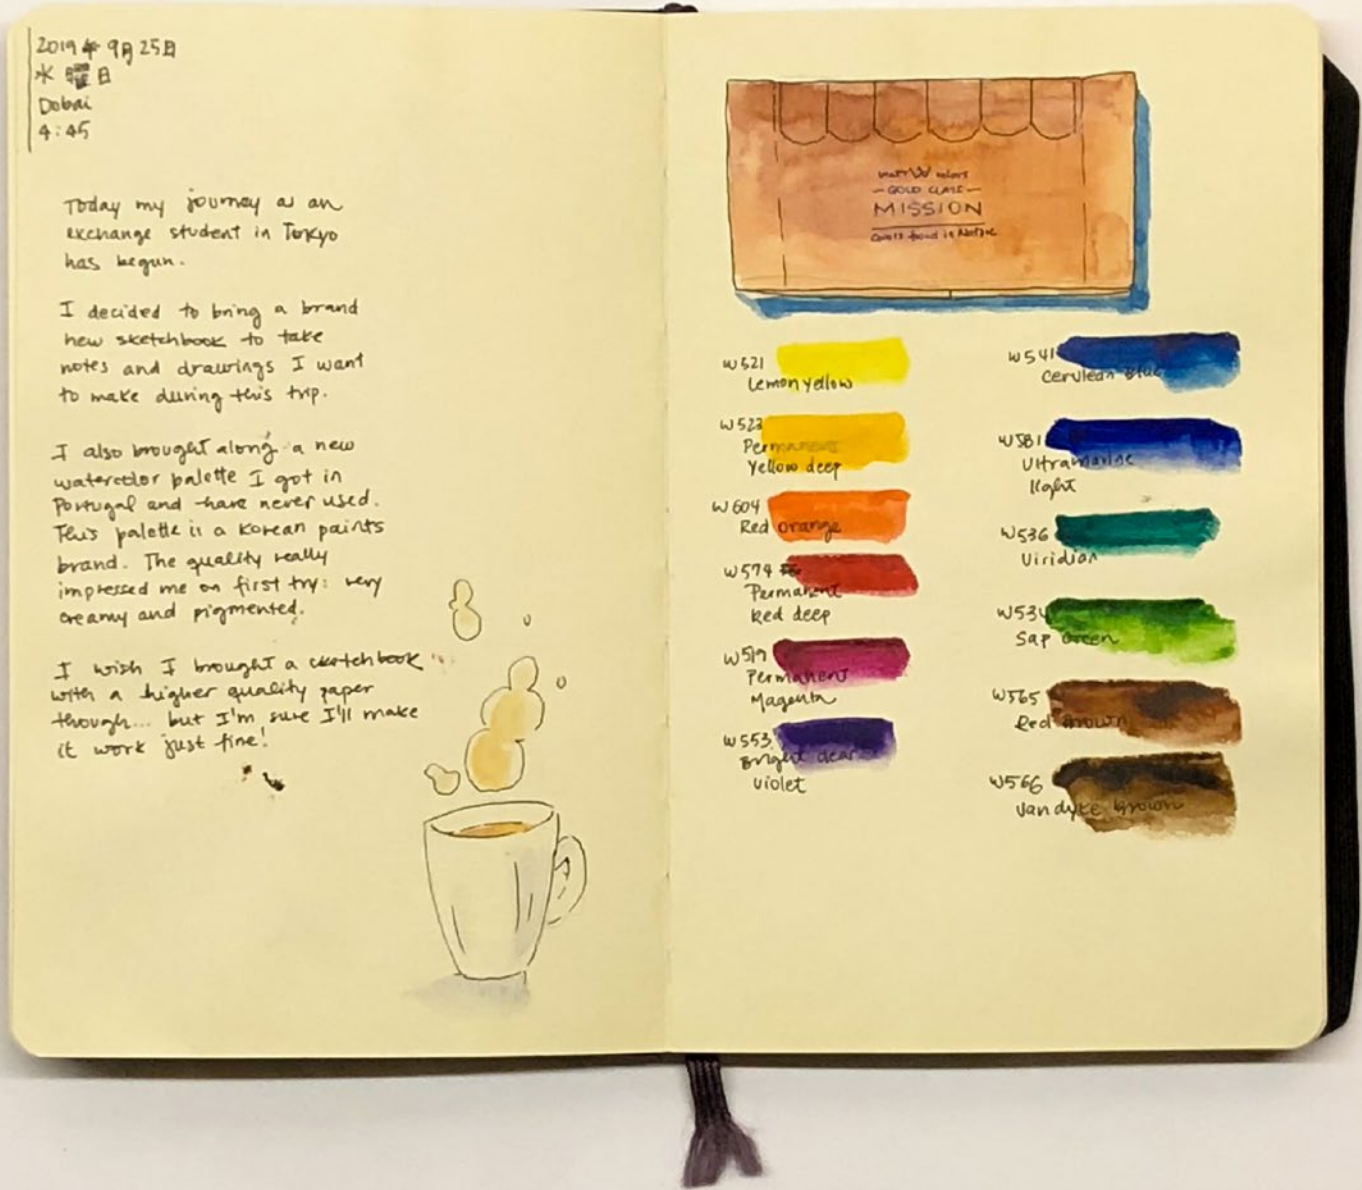 2019年9月25日
水曜日
Dobai
4:45
Today my journey as an
exchange student in Tokyo
has begun.
I decided to bring a brand
new sketchbook to take
notes and drawings I want
to make during this trip.
I also brought along a new
watercolor palette I got in
Portugal and have never used.
This palette is a Korean paints
brand. The quality really
impressed me on first try: very
creamy and pigmented.
I wish I brought a sketchbook
with a higher quality paper
though... but I'm sure I'll make
it work just fine!
GOLD CLASS
MISSION
Colors found in Nature
W521
Lemon yellow
W523
Permanent
Yellow deep
W604
Red orange
W574
Permanent
Red deep
W519
Permanent
Magenta
W553
Bright clear
violet
W541
Cerulean Blue
W581
Ultramarine
light
W536
Viridian
W534
Sap Green
W565
Red Brown
W566
Van dyke brown